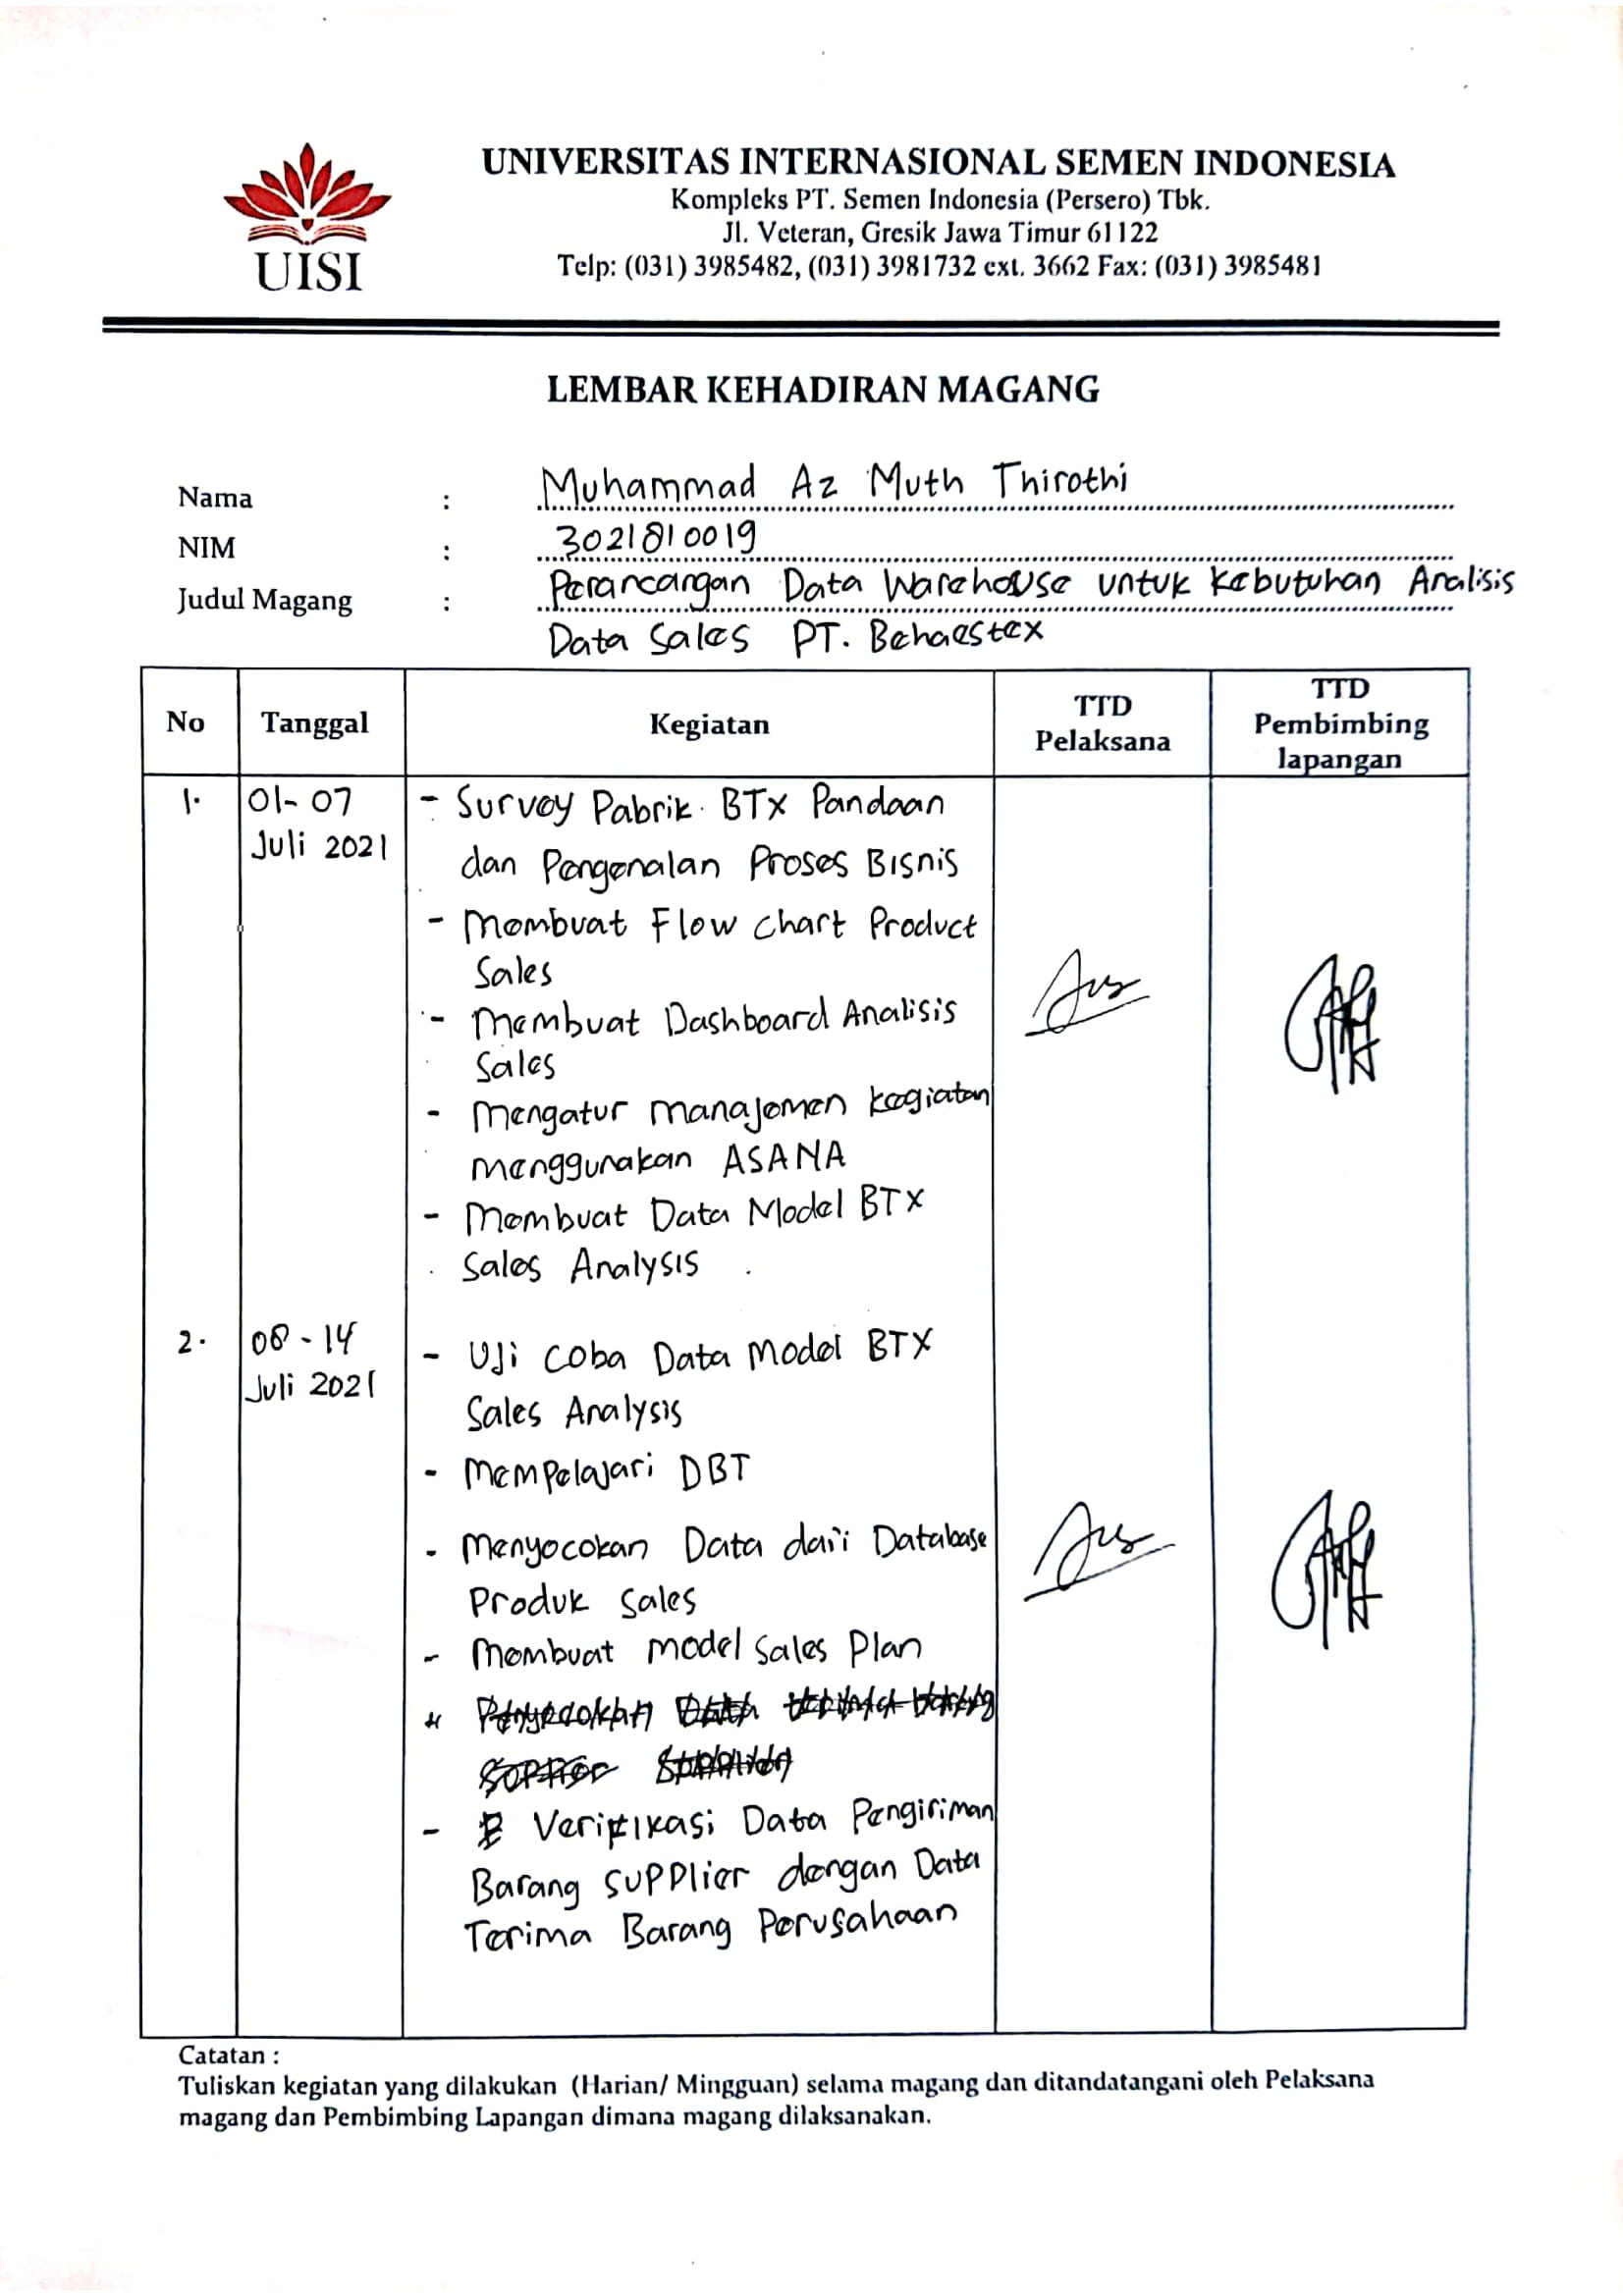 UNIVERSITAS INTERNASIONAL SEMEN INDONESIA
Kompleks PT. Semen Indonesia (Persero) Tbk.
Jl. Veteran, Gresik Jawa Timur 61122
Telp: (031) 3985482, (031) 3981732 ext. 3662 Fax: (031) 3985481
UISI
LEMBAR KEHADIRAN MAGANG
Nama : Muhammad Az Muth Thirothi
NIM : 3021810019
Judul Magang : Perancangan Data Warehouse untuk kebutuhan Analisis
Data Sales PT. Behaestex
No Tanggal Kegiatan TTD Pelaksana TTD Pembimbing lapangan
1. 01-07 Juli 2021
- Survey Pabrik BTX Pandaan
dan Pengenalan Proses Bisnis
- Membuat Flow chart Product
Sales
- Membuat Dashboard Analisis
Sales
- Mengatur manajemen kegiatan
menggunakan ASANA
- Membuat Data Model BTX
Sales Analysis
2. 08-14 Juli 2021
- Uji coba Data Model BTX
Sales Analysis
- Mempelajari DBT
- Menyocokan Data dari Database
Produk Sales
- Membuat model Sales Plan
- Verifikasi Data Pengiriman
Barang supplier dengan Data
Terima Barang Perusahaan
Catatan :
Tuliskan kegiatan yang dilakukan (Harian/ Mingguan) selama magang dan ditandatangani oleh Pelaksana
magang dan Pembimbing Lapangan dimana magang dilaksanakan.